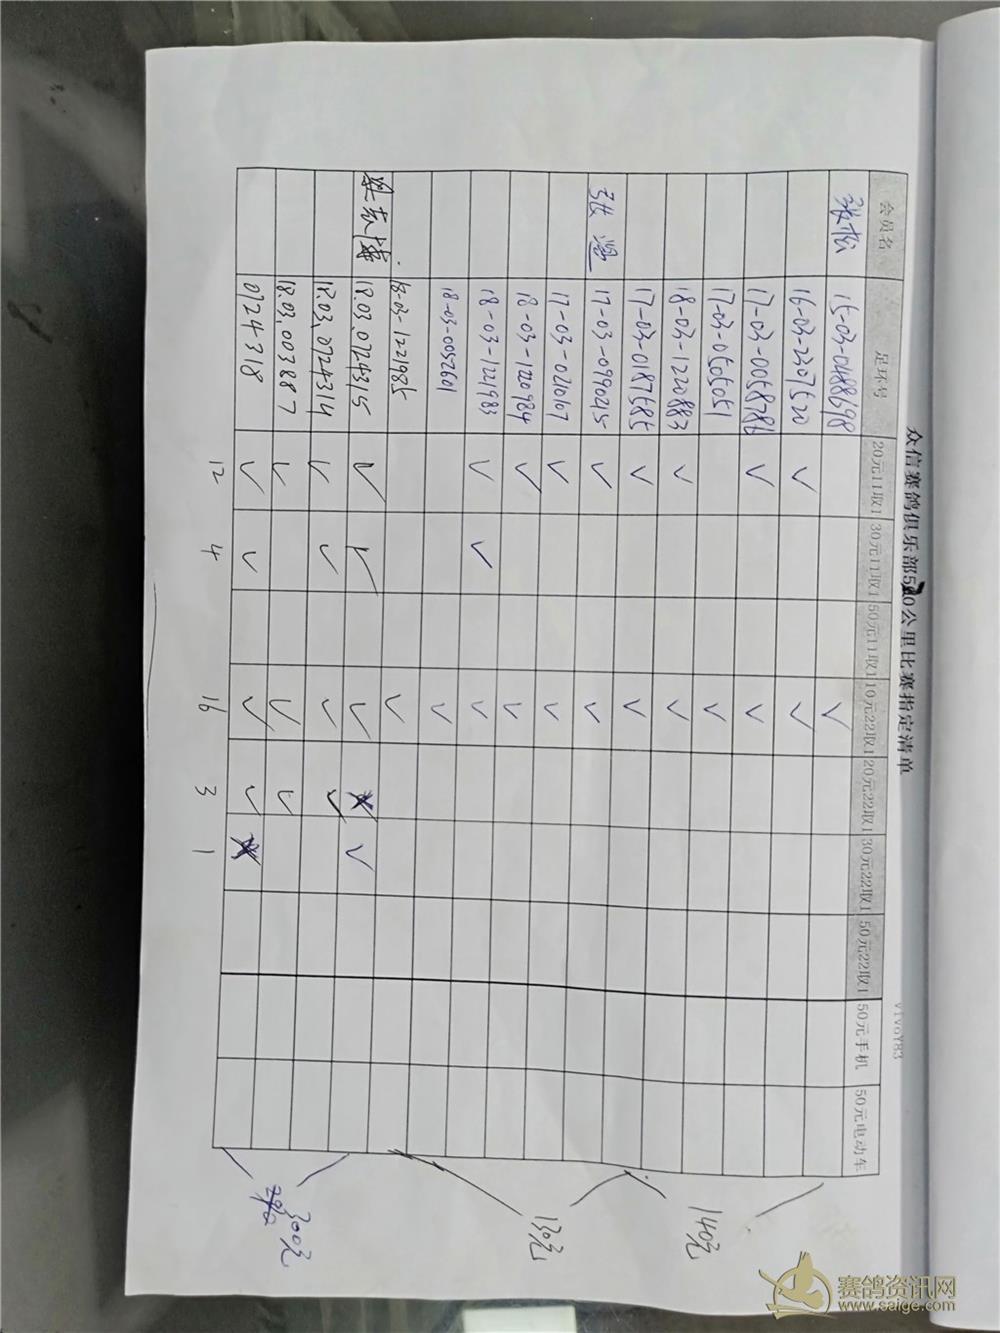 众信赛鸽俱乐部520公里比赛指定清单
vivoY83
会员名 足环号 20元11取1 30元11取1 50元11取1 10元22取1 20元22取1 30元22取1 50元22取1 50元手机 50元电动车
张松 15-03-0488698 ✓
16-03-2307520 ✓ ✓
17-03-0058786 ✓ ✓
17-03-0505051 ✓
18-03-1220883 ✓ ✓
17-03-0187585 ✓ ✓
张 17-03-0990215 ✓ ✓
17-03-0210107 ✓ ✓
18-03-1220984 ✓ ✓
18-03-1221983 ✓ ✓ ✓
18-03-0052601 ✓
18-03-1221985 ✓
18.03.0724315 ✓ ✓ ✓ ✓
18.03.0724314 ✓ ✓ ✓ ✓
18.03.003887 ✓ ✓ ✓
0724318 ✓ ✓ ✓ ✓
12 4 16 3 1
140元
130元
300元
赛鸽资讯网
www.saige.com